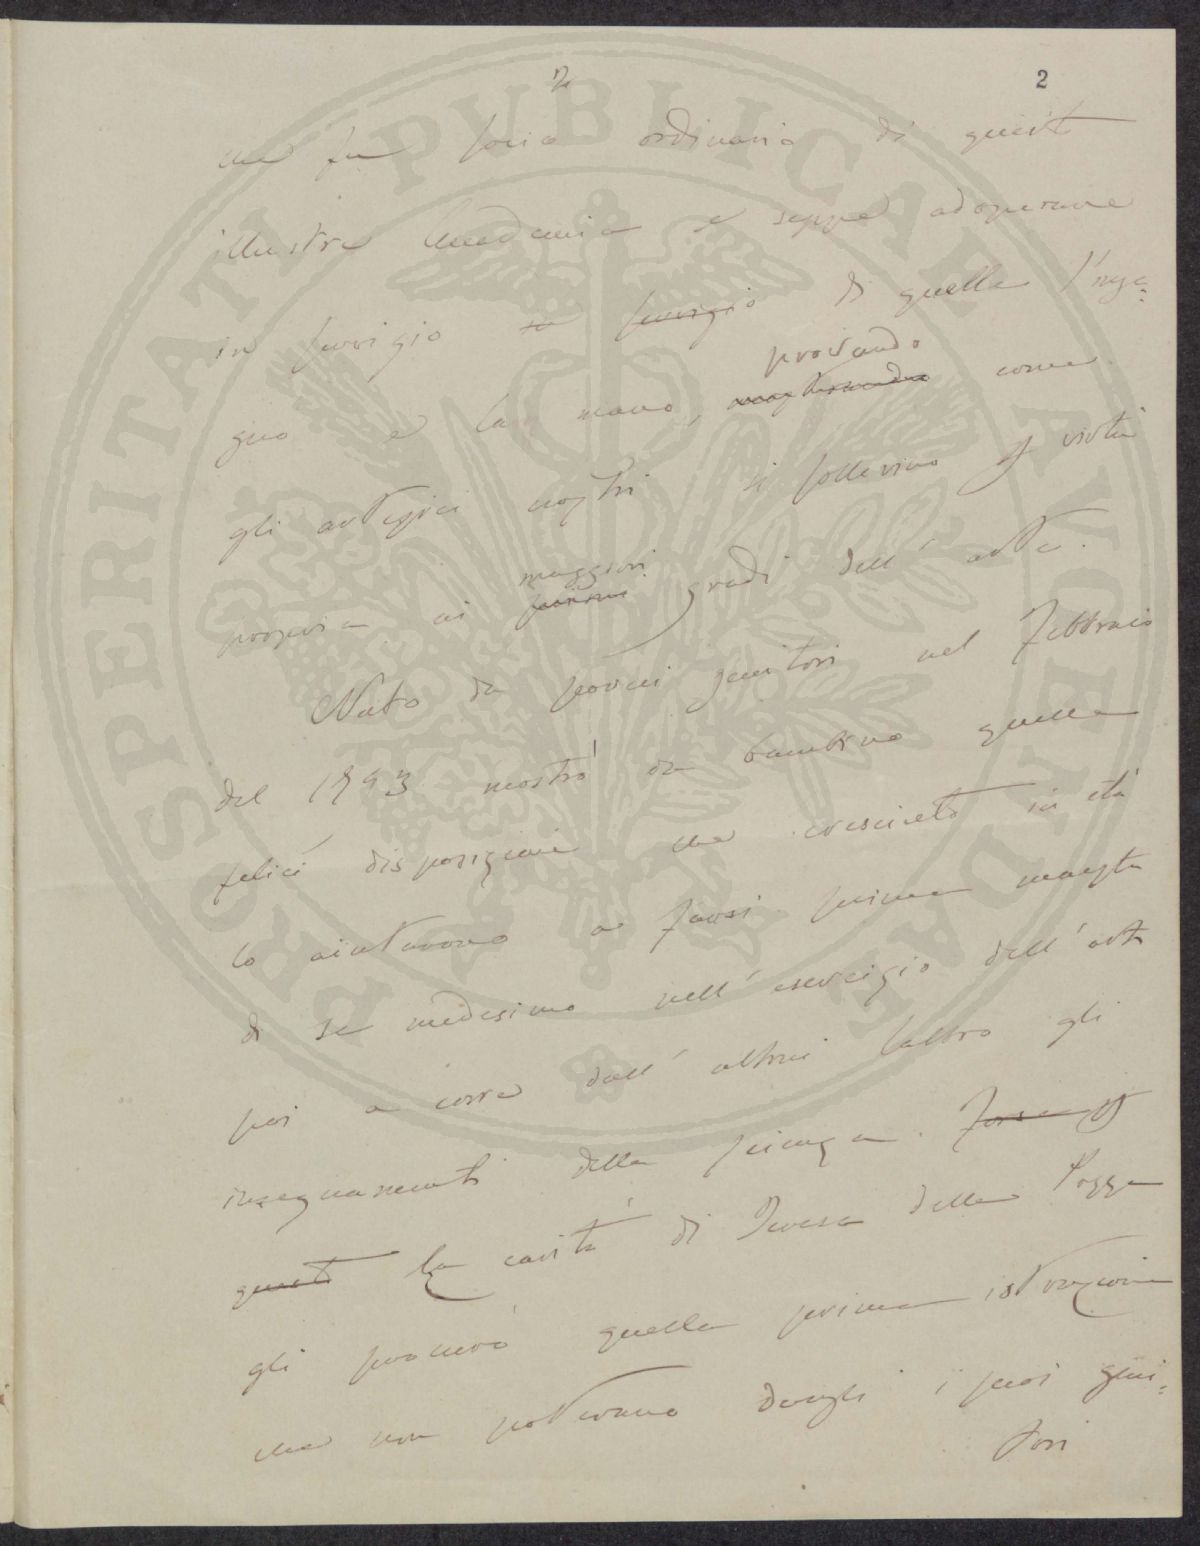 2
che fu socio ordinario di questa
illustre Accademia e seppe adoperare
in servigio in servigio di quella l'inge=
provando
gno e la mano, come
gli artefici nostri si sollevino virtù
maggiori
propria ai primi gradi dell'arte.
Nato da poveri genitori nel Febbraio
del 1793 mostrò da bambino quelle
felici disposizioni che cresciuto in età
lo aiutarono a farsi prima maestro
di se medesimo nell'esercizio dell'arte
poi a corre dall'altrui labbro gli
insegnamenti della scienza. Forse
questa la carità di Teresa della Pozza
gli procurò quella prima istruzione
che non potevano dargli i suoi geni=
tori
PROSPERITATI PVBLICAE AVGENDAE